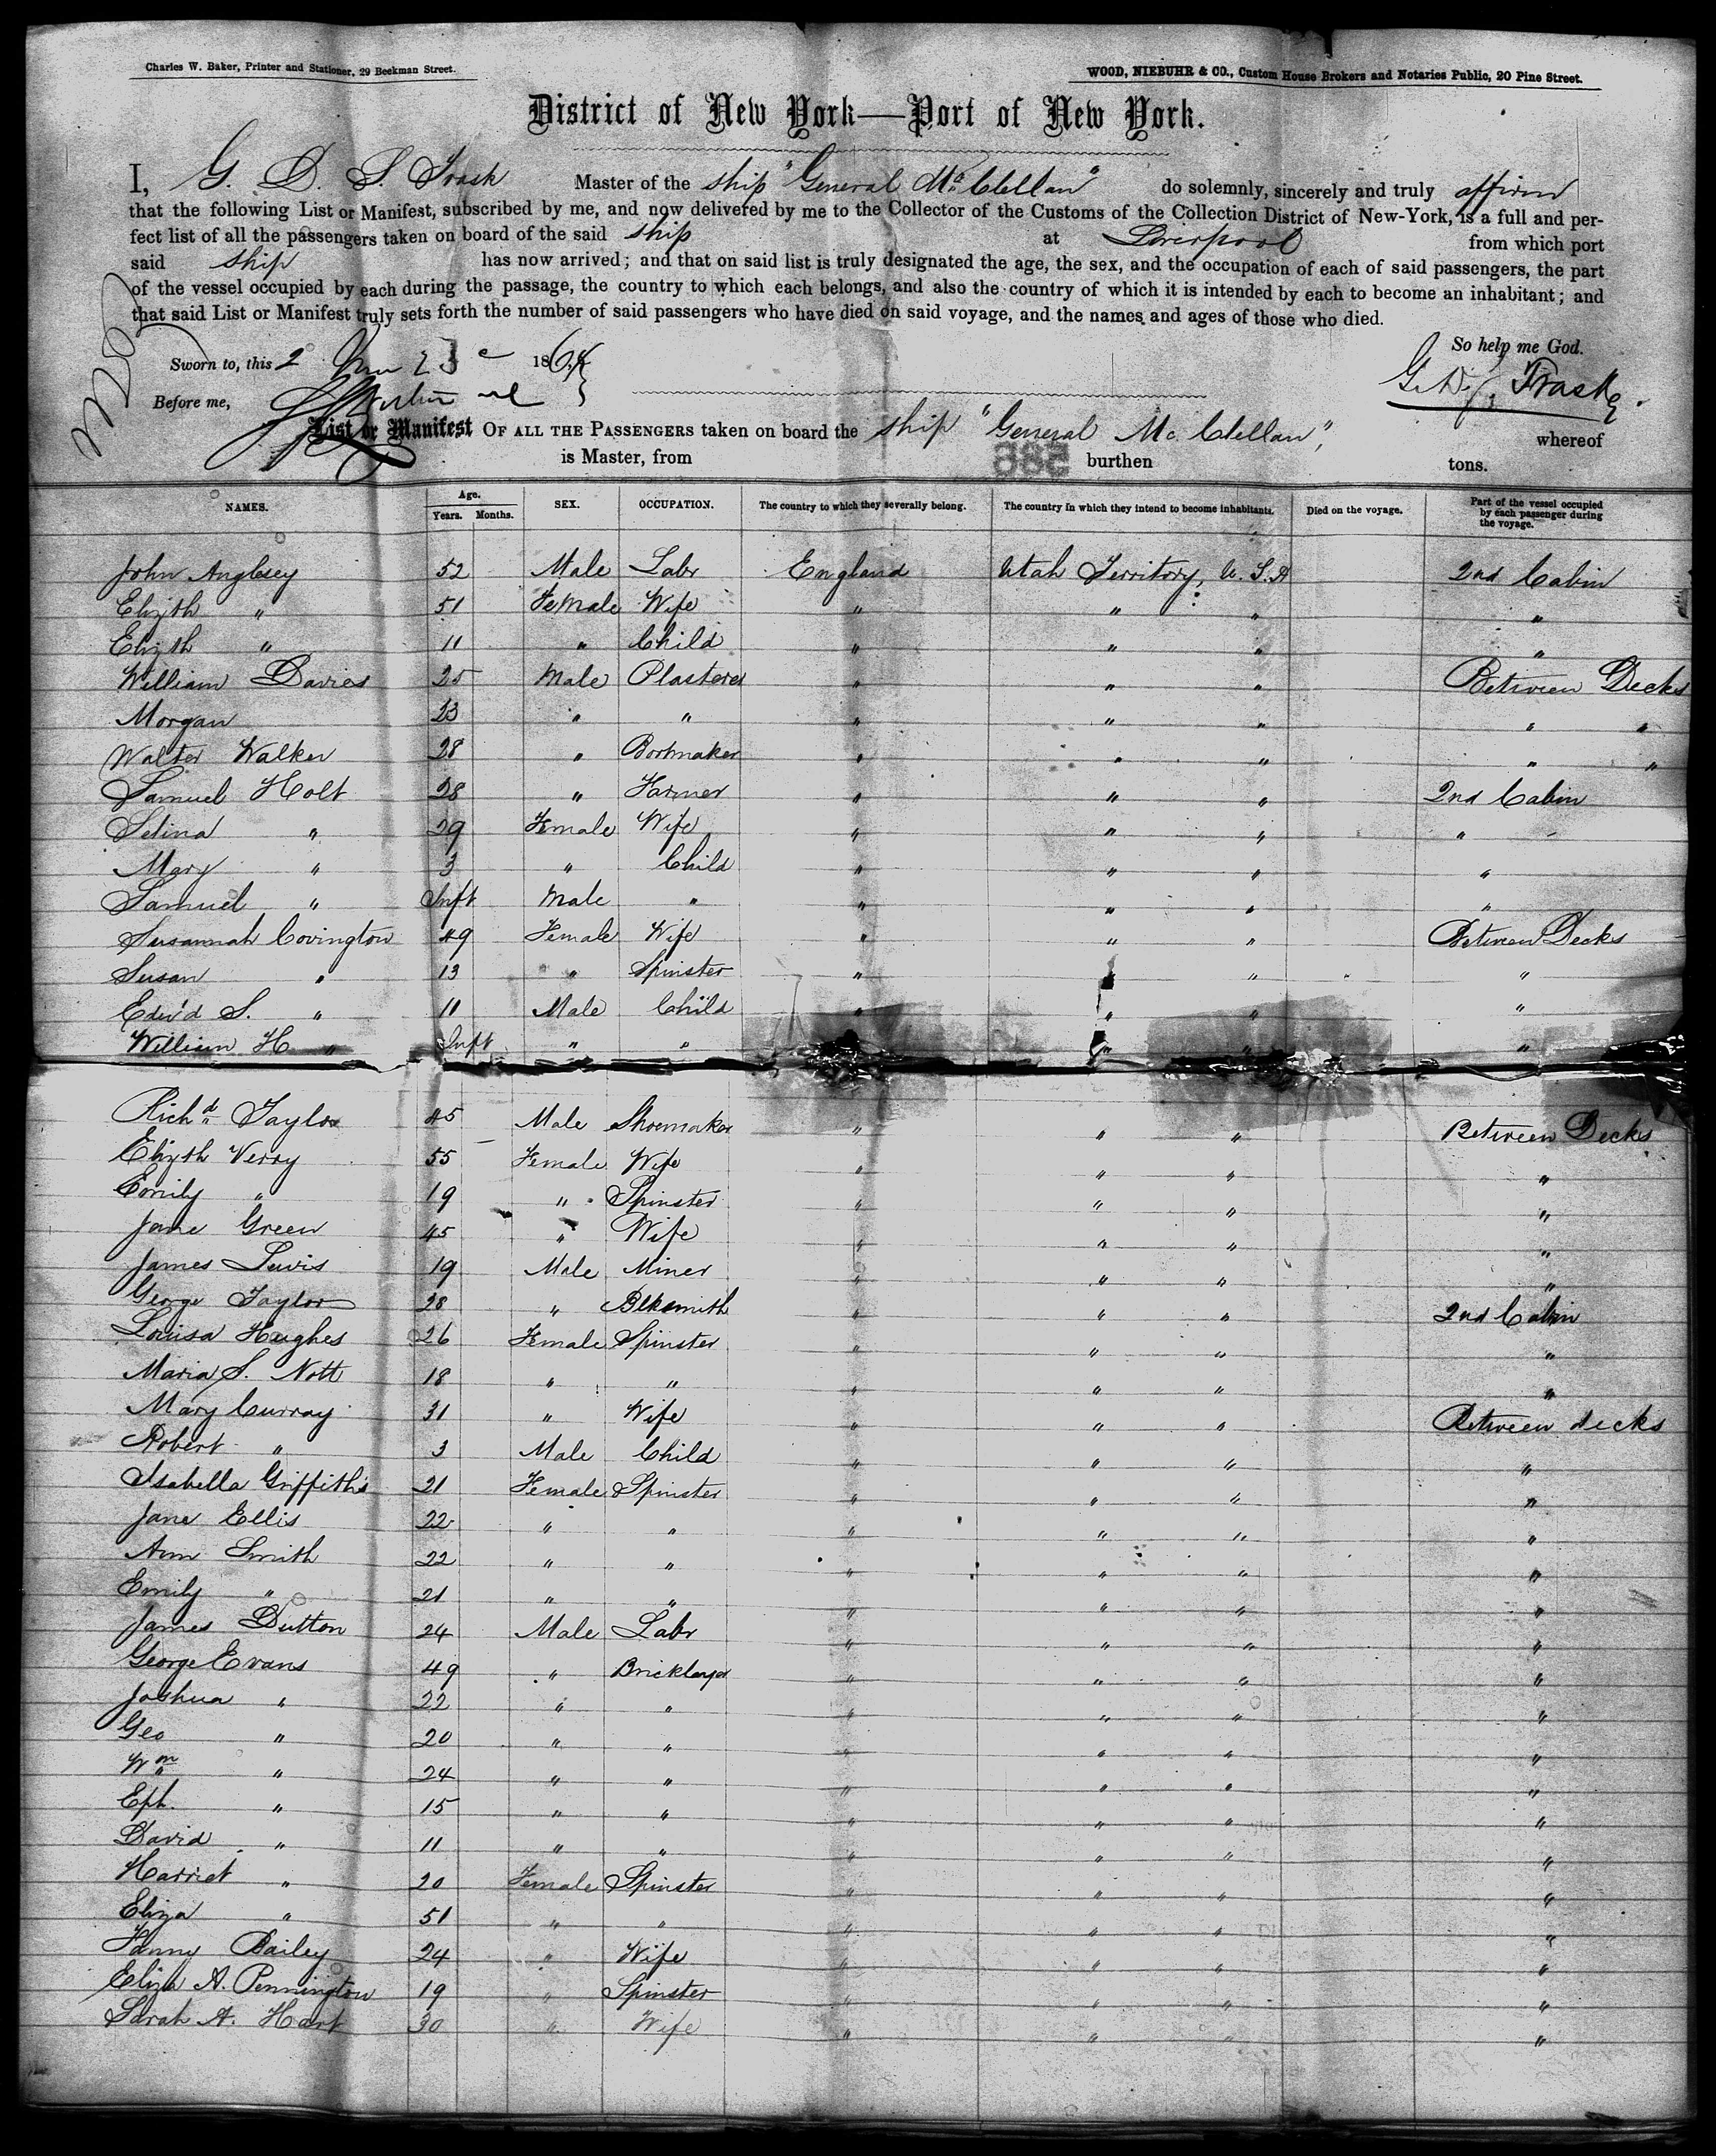 Charles W. Baker, Printer and Stationer, 29 Beekman Street.
WOOD, NIEBUHR & CO., Custom House Brokers and Notaries Public, 20 Pine Street.
District of New York—Port of New York.
I, G. D. S. Trask Master of the ship "General McClellan" do solemnly, sincerely and truly affirm
that the following List or Manifest, subscribed by me, and now delivered by me to the Collector of the Customs of the Collection District of New-York, is a full and per-
fect list of all the passengers taken on board of the said ship at Liverpool from which port
said ship has now arrived; and that on said list is truly designated the age, the sex, and the occupation of each of said passengers, the part
of the vessel occupied by each during the passage, the country to which each belongs, and also the country of which it is intended by each to become an inhabitant; and
that said List or Manifest truly sets forth the number of said passengers who have died on said voyage, and the names and ages of those who died.
So help me God.
Sworn to, this 23 1864
G. D. S. Trask
Before me,
List or Manifest OF ALL THE PASSENGERS taken on board the ship "General Mc. Clellan", whereof
is Master, from burthen tons.
NAMES. Age. Years. Months. SEX. OCCUPATION. The country to which they severally belong. The country in which they intend to become inhabitants. Died on the voyage. Part of the vessel occupied by each passenger during the voyage.
John Anglesey 52 Male Labr England Utah Territory, U.S.A 2nd Cabin
Elizth " 51 Female Wife " " " "
Elizth " 11 " Child " " " "
William Davies 25 Male Plasterer " " " Between Decks
Morgan 23 " " " " " " "
Walter Walker 28 " Bootmaker " " " " "
Samuel Holt 28 " Farmer " " " 2nd Cabin
Selina " 29 Female Wife " " " "
Mary " 3 " Child " " " "
Samuel " Inft Male " " " " "
Susannah Covington 49 Female Wife " " " Between Decks
Susan " 13 " Spinster " " " "
Edw'd S. " 11 Male Child " " " "
William H " Inft " " " " "
Richd Taylor 45 Male Shoemaker " " " Between Decks
Elizth Verry 55 Female Wife " " " "
Emily " 19 " Spinster " " " "
Jane Green 45 " Wife " " " "
James Lewis 19 Male Miner " " " "
George Taylor 28 " Blksmith " " " 2nd Cabin
Louisa Hughes 26 Female Spinster " " " "
Maria S. Nott 18 " " " " " "
Mary Curray 31 " Wife " " " Between decks
Robert " 3 Male Child " " " "
Isabella Griffiths 21 Female Spinster " " " "
Jane Ellis 22 " " " " " "
Ann Smith 22 " " " " " "
Emily " 21 " " " " " "
James Dutton 24 Male Labr " " " "
George Evans 49 " Bricklayer " " " "
Joshua " 22 " " " " " "
Geo " 20 " " " " " "
Wm " 24 " " " " " "
Eph. " 15 " " " " " "
David " 11 " " " " " "
Harriet " 20 Female Spinster " " " "
Eliza " 51 " " " " " "
Fanny Bailey 24 " Wife " " " "
Eliza A. Pennington 19 " Spinster " " " "
Sarah A. Hart 30 " Wife " " " "